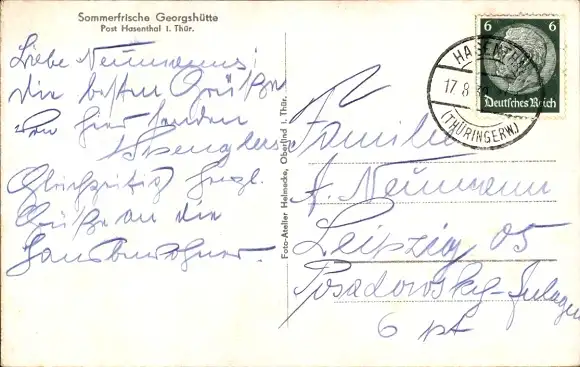 Sommerfrische Georgshütte
Post Hasenthal i. Thür.
Liebe Neumanns!
die besten Grüße
von hier senden
Spenglers
Gleichzeitig herzl.
Grüße an die
Hausbewohner.
Foto-Atelier Helmecke, Oberlind i. Thür.
6 6
Deutsches Reich
HASENTHAL
17.8.
(THÜRINGERW)
Familie
A. Neumann
Leipzig O5
Posadowsky-Anlagen
6 pt